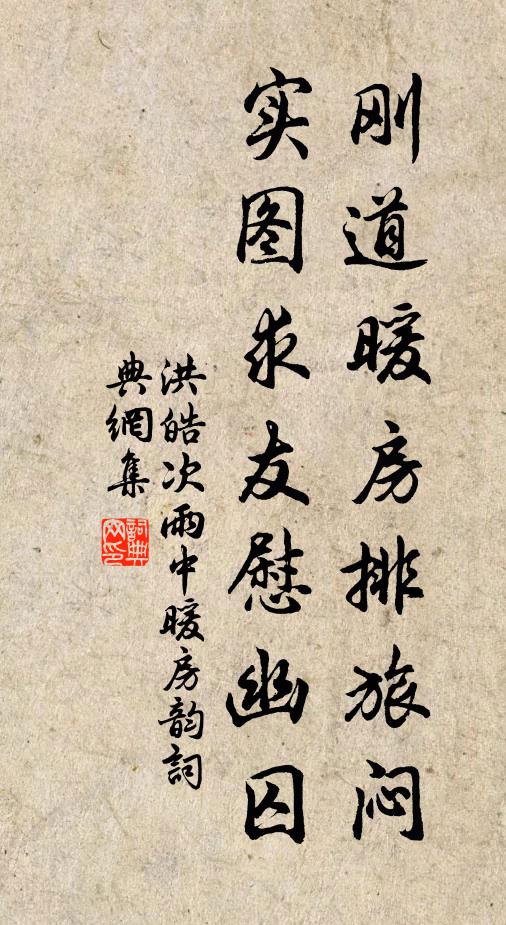 刚道暖房排旅闷
实图求友慰幽囚
洪皓次雨中暖房韵詞
典網集
詞典
网印